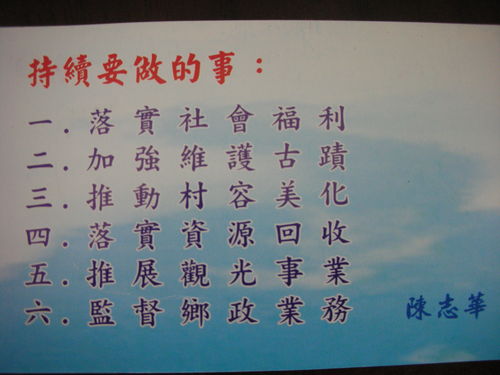 持續要做的事：
一．落實社會福利
二．加強維護古蹟
三．推動村容美化
四．落實資源回收
五．推展觀光事業
六．監督鄉政業務
陳志華